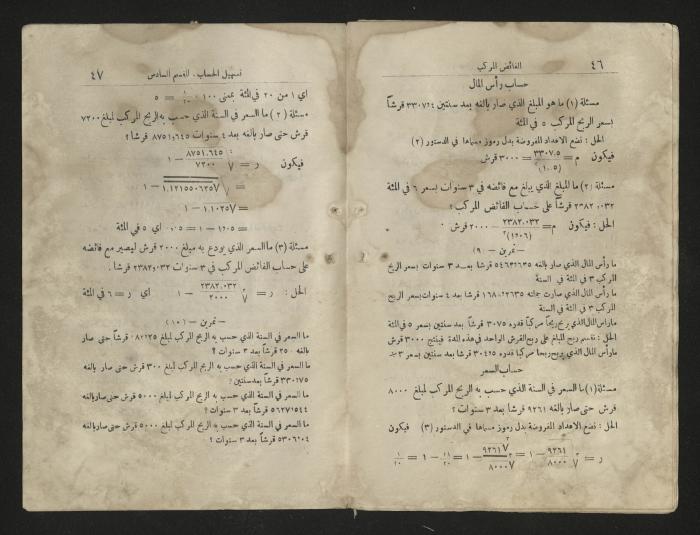 ٤٦
الفائض المركب
حساب رأس المال
مسئلة (١) ما هو المبلغ الذي صار بالغه بعد سنتين ٣٣٠٧٢٤ قرشاً
بسعر الربح المركب ٥ في المئة
الحل: نضع الاعداد المفروضة بدل رموز مسماها في الدستور (٢)
فيكون م = ٣٣٠٧.٥ / (١.٠٥)٢ = ٣٠٠٠ قرش
مسئلة (٢) ما المبلغ الذي يبلغ مع فائضه في ٣ سنوات بسعر ٦ في المئة
٢٣٨٢.٠٣٢ قرشاً على حساب الفائض المركب؟
الحل: فيكون م = ٢٣٨٢.٠٣٢ / (١.٠٦)٣ = ٢٠٠٠ قرش
— تمرين (٩) —
ما رأس المال الذي صار بالغه ٥٤٦٣٦٣٥ قرشا بعد ٣ سنوات بسعر الربح
المركب ٣ في المئة في السنة
ما رأس المال الذي صارت جملته قرشا بعد ٤ سنوات بسعر الربح
المركب ٣ في المئة في السنة
ما رأس المال الذي ربح ربحاً مركباً قدره ٣٠٧٥ قرشاً بعد سنتين بسعر ٥ في المئة
الحل: نقسم ربح المبلغ على ربح القرش الواحد في هذه المدة فينتج ٣٠٠٠ قرش
ما رأس المال الذي يربح ربحا مركبا قدره ٣٠٤٢٥ قرشا بعد سنتين بسعر ٣
حساب السعر
مسئلة (١) ما السعر في السنة الذي حسب به الربح المركب لمبلغ ٨٠٠٠
قرش حتى صار بالغه ٩٢٦١ قرشا بعد ٣ سنوات؟
الحل: نضع الاعداد المفروضة بدل رموز مسماها في الدستور (٣) فيكون
ر = ٣√ ٩٢٦١ / ٨٠٠٠ − ١ = ٣√٩٢٦١ / ٣√٨٠٠٠ − ١ = ٢١ / ٢٠ − ١ = ١ / ٢٠
٤٧
تسهيل الحساب. القسم السادس
اي ١ من ٢٠ في المئة بمعنى ١٠٠ × ١ / ٢٠ = ٥
مسئلة (٢) ما السعر في السنة الذي حسب به الربح المركب لمبلغ ٧٢٠٠
قرش حتى صار بالغه بعد ٤ سنوات ٨٧٥١.٦٤٥ قرشا؟
فيكون ر = ٤√ ٨٧٥١.٦٤٥ / ٧٢٠٠ − ١
= √√١.٢١٥٥٠٦٢٥ − ١
= √١.١٠٢٥ − ١
= ١.٠٥ − ١ = ٠.٠٥ اي ٥ في المئة
مسئلة (٣) ما السعر الذي يودع به مبلغ ٢٠٠٠ قرش ليصير مع فائضه
على حساب الفائض المركب في ٣ سنوات ٢٣٨٢.٠٣٢ قرشا.
الحل: ر = ٣√ ٢٣٨٢.٠٣٢ / ٢٠٠٠ − ١ اي ر = ٦ في المئة
— تمرين (١٠) —
ما السعر في السنة الذي حسب به الربح المركب لمبلغ قرشاً حتى صار
بالغه ٢٥٠ قرشا بعد ٣ سنوات؟
ما السعر في السنة الذي حسب به الربح المركب لمبلغ ٣٠٠ قرش حتى صار بالغه
٣٣٠٧٥ قرشا بعد سنتين؟
ما السعر في السنة الذي حسب به الربح المركب لمبلغ ٥٠٠٠ قرش حتى صار بالغه
٥٦٢٧١٥٤٤ قرشاً بعد ٣ سنوات؟
ما السعر في السنة الذي حسب به الربح المركب لمبلغ ٥٠٠٠ قرش حتى صار بالغه
٥٣٠٦٢٠٤ قرشاً بعد ٣ سنوات؟